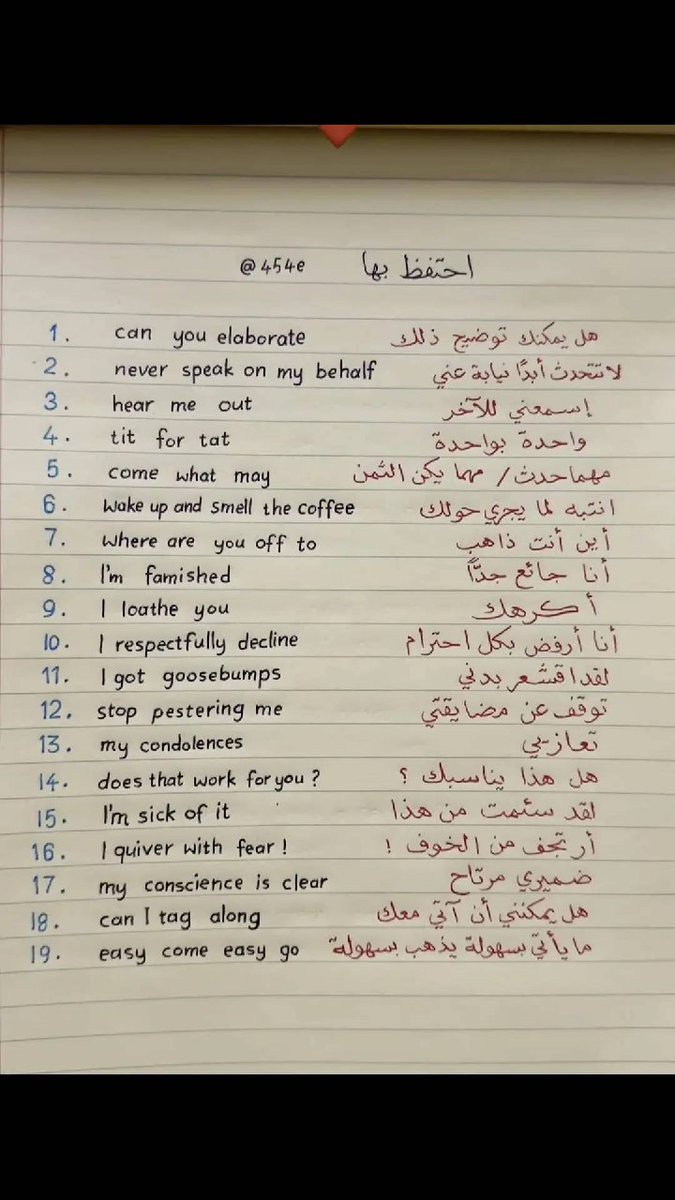 @454e احتفظ بها
1. can you elaborate هل يمكنك توضيح ذلك
2. never speak on my behalf لا تتحدث أبدًا نيابة عني
3. hear me out إسمعني للآخر
4. tit for tat واحدة بواحدة
5. come what may مهما حدث / مهما يكن الثمن
6. wake up and smell the coffee انتبه لما يجري حولك
7. where are you off to أين أنت ذاهب
8. I'm famished أنا جائع جدًّا
9. I loathe you أكرهك
10. I respectfully decline أنا أرفض بكل احترام
11. I got goosebumps لقد اقشعر بدني
12. stop pestering me توقف عن مضايقتي
13. my condolences تعازيي
14. does that work for you ? هل هذا يناسبك ؟
15. I'm sick of it لقد سئمت من هذا
16. I quiver with fear ! أرتجف من الخوف !
17. my conscience is clear ضميري مرتاح
18. can I tag along هل يمكنني أن آتي معك
19. easy come easy go ما يأتي بسهولة يذهب بسهولة